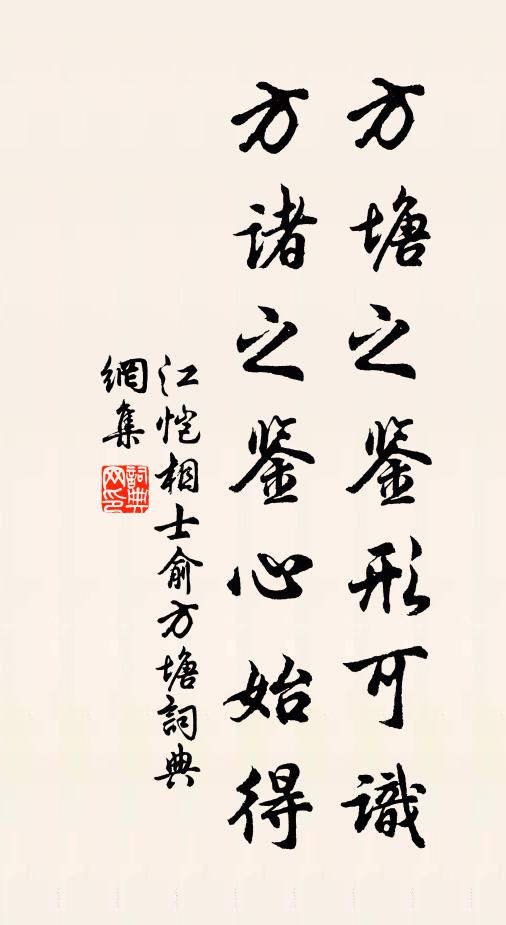 方塘之鉴形可識
方诸之鉴心始得
江恺相士俞方塘詞典
網集
詞典
网印